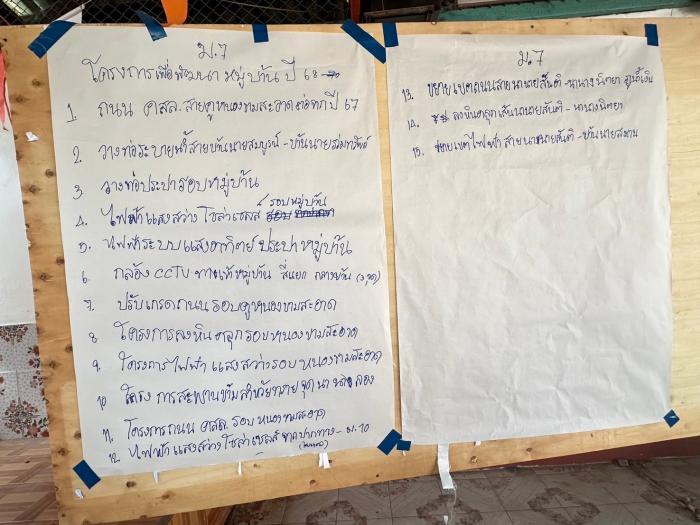 ม.7
โครงการเพื่อพัฒนา หมู่บ้าน ปี 68-70
1. ถนน คสล. สายคูหนองขามสะอาดต่อจากปี 67
2. วางท่อระบายน้ำสายบ้านนายสมบูรณ์ - บ้านนายสมทรัพย์
3. วางท่อประปารอบหมู่บ้าน
4. ไฟฟ้าแสงสว่าง โซล่าเซลล์ รอบหมู่บ้าน
5. ไฟฟ้าระบบแสงอาทิตย์ ประปาหมู่บ้าน
6. กล้อง CCTV ทางเข้าหมู่บ้าน สี่แยก กลางบ้าน (3 จุด)
7. ปรับเกรดถนน รอบคูหนองขามสะอาด
8. โครงการลงหินคลุกรอบหนองขามสะอาด
9. โครงการไฟฟ้าแสงสว่างรอบหนองขามสะอาด
10. โครงการสะพานข้ามลำห้วยทราย จุดนา
11. โครงการถนน คสล. รอบหนองขามสะอาด
12. ไฟฟ้าแสงสว่างโซล่าเซลล์ จากปากทาง - ม.10
ม.7
13. ขยายเขตถนนสายนานายสันติ - นานางนิตยา
14. ลงหินคลุกเส้นนานายสันติ - นานางนิตยา
15. ขยายเขตไฟฟ้าสายนานายสันติ - บ้านนายสมาน